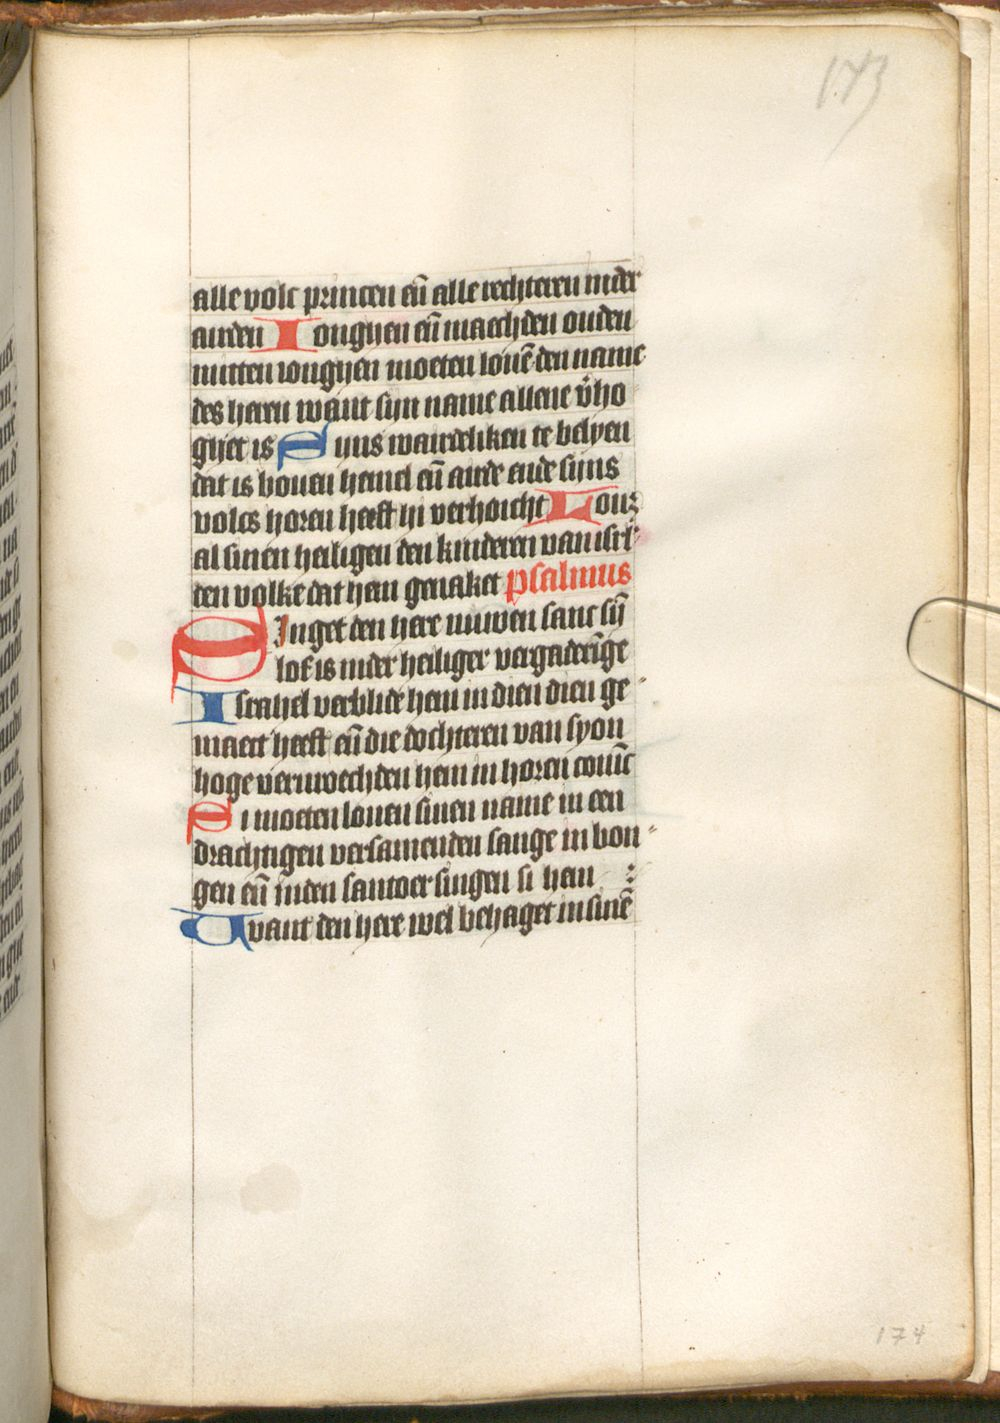 173
alle volc princen eñ alle rechteren inder
airden Ionghen eñ maechden ouden
mitten ionghen moeten louē den name
des heren want sijn name allene v̄ho
ghet is Sijns wairdeliken te belyen
dat is bouen hemel eñ airde ende sijns
volcs horen heeft hi verhoicht Lour
al sinen heiligen den kinderen van isrl
den volke dat hem genaket psalmus
SInget den here nuwen sanc sij̄
lof is inder heiliger vergaderīge
Israhel verblide hem in dien dien ge
maect heeft eñ die dochteren van syon
hoge verwoechden hem in horen conīc
Si moeten louen sinen name in een
drachtigen versamenden sange in bon
gen eñ inden santoer singen si hem :
Want den here wel behaget in sinē
174